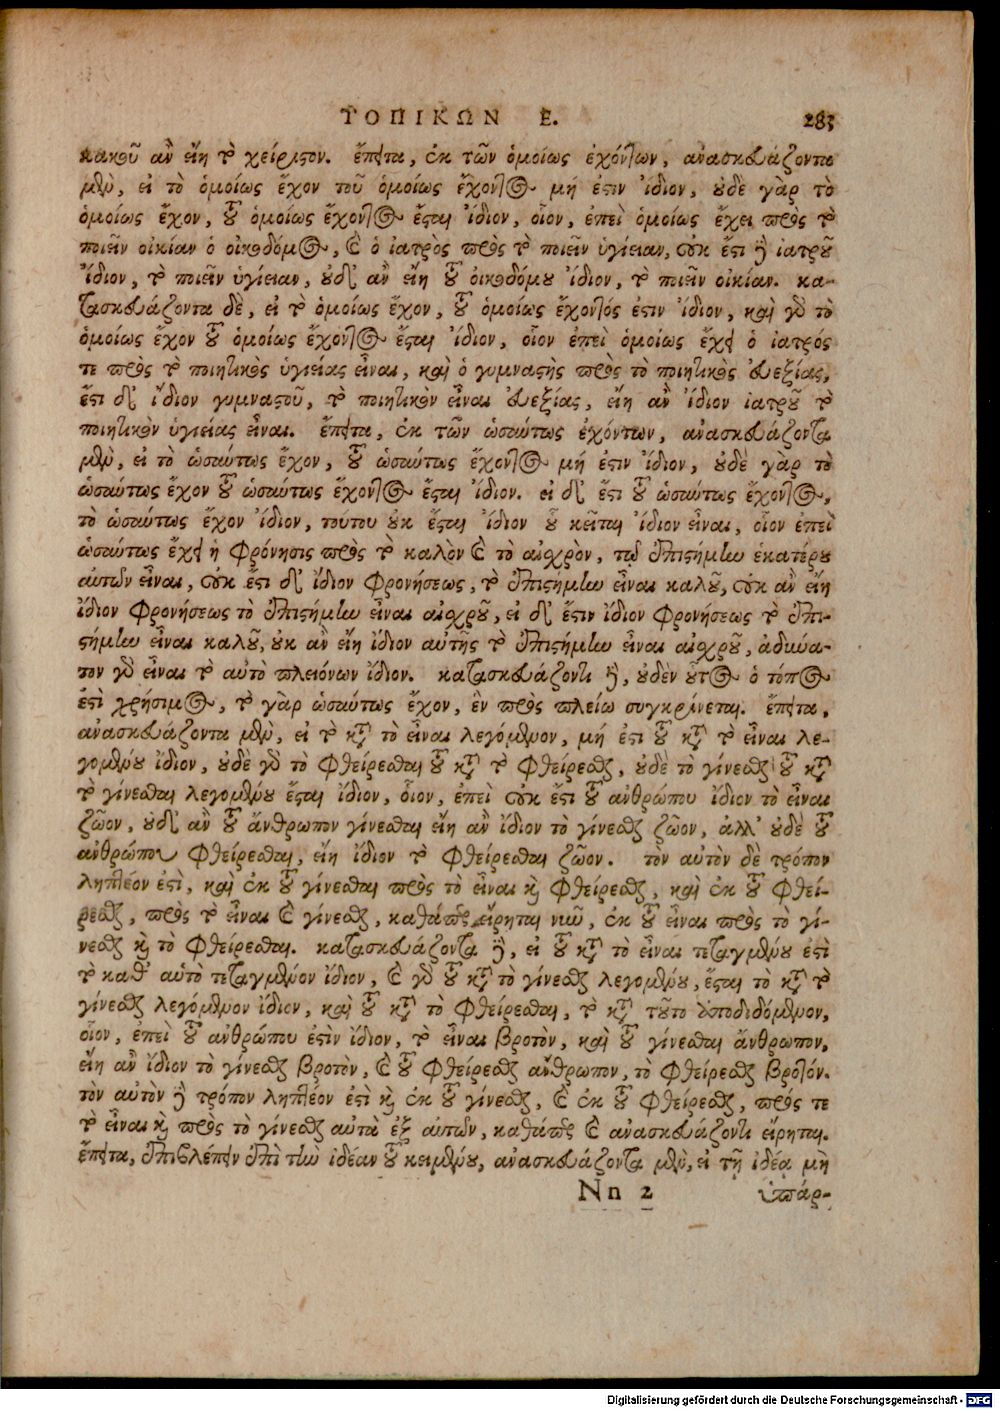 ΤΟΠΙΚΩΝ Ε. 283
κακοῦ ἂν εἴη τὸ χείριστον. ἔπειτα, ἐκ τῶν ὁμοίως ἐχόντων, ἀνασκευάζοντα
μὲν, εἰ τὸ ὁμοίως ἔχον τοῦ ὁμοίως ἔχοντος μή ἐστιν ἴδιον, οὐδὲ γὰρ τὸ
ὁμοίως ἔχον, τοῦ ὁμοίως ἔχοντος ἔσται ἴδιον, οἷον, ἐπεὶ ὁμοίως ἔχει πρὸς τὸ
ποιεῖν οἰκίαν ὁ οἰκοδόμος, καὶ ὁ ἰατρὸς πρὸς τὸ ποιεῖν ὑγίειαν, οὐκ ἔστι δὲ ἰατροῦ
ἴδιον, τὸ ποιεῖν ὑγίειαν, οὐδ' ἂν εἴη τοῦ οἰκοδόμου ἴδιον, τὸ ποιεῖν οἰκίαν. κα-
τασκευάζοντα δὲ, εἰ τὸ ὁμοίως ἔχον, τοῦ ὁμοίως ἔχοντός ἐστιν ἴδιον, καὶ γὰρ τὸ
ὁμοίως ἔχον τοῦ ὁμοίως ἔχοντος ἔσται ἴδιον, οἷον ἐπεὶ ὁμοίως ἔχει ὁ ἰατρός
τε πρὸς τὸ ποιητικὸς ὑγιείας εἶναι, καὶ ὁ γυμναστὴς πρὸς τὸ ποιητικὸς εὐεξίας,
ἔστι δ' ἴδιον γυμναστοῦ, τὸ ποιητικὸν εἶναι εὐεξίας, εἴη ἂν ἴδιον ἰατροῦ τὸ
ποιητικὸν ὑγιείας εἶναι. ἔπειτα, ἐκ τῶν ὡσαύτως ἐχόντων, ἀνασκευάζοντα
μὲν, εἰ τὸ ὡσαύτως ἔχον, τοῦ ὡσαύτως ἔχοντος μή ἐστιν ἴδιον, οὐδὲ γὰρ τὸ
ὡσαύτως ἔχον τοῦ ὡσαύτως ἔχοντος ἔσται ἴδιον. εἰ δ' ἔστι τοῦ ὡσαύτως ἔχοντος,
τὸ ὡσαύτως ἔχον ἴδιον, τούτου οὐκ ἔσται ἴδιον οὗ κεῖται ἴδιον εἶναι, οἷον ἐπεὶ
ὡσαύτως ἔχει ἡ φρόνησις πρὸς τὸ καλὸν καὶ τὸ αἰσχρὸν, τῷ ἐπιστήμην ἑκατέρου
αὐτῶν εἶναι, οὐκ ἔστι δ' ἴδιον φρονήσεως, τὸ ἐπιστήμην εἶναι καλοῦ, οὐκ ἂν εἴη
ἴδιον φρονήσεως τὸ ἐπιστήμην εἶναι αἰσχροῦ, εἰ δ' ἔστιν ἴδιον φρονήσεως τὸ ἐπι-
στήμην εἶναι καλοῦ, οὐκ ἂν εἴη ἴδιον αὐτῆς τὸ ἐπιστήμην εἶναι αἰσχροῦ, ἀδύνα-
τον γὰρ εἶναι τὸ αὐτὸ πλειόνων ἴδιον. κατασκευάζοντι δὲ, οὐδὲν οὗτος ὁ τόπος
ἐστὶ χρήσιμος, τὸ γὰρ ὡσαύτως ἔχον, ἓν πρὸς πλείω συγκρίνεται. ἔπειτα,
ἀνασκευάζοντα μὲν, εἰ τὸ κατὰ τὸ εἶναι λεγόμενον, μή ἐστι τοῦ κατὰ τὸ εἶναι λε-
γομένου ἴδιον, οὐδὲ γὰρ τὸ φθείρεσθαι τοῦ κατὰ τὸ φθείρεσθαι, οὐδὲ τὸ γίνεσθαι τοῦ κατὰ
τὸ γίνεσθαι λεγομένου ἔσται ἴδιον, οἷον, ἐπεὶ οὐκ ἔστι τοῦ ἀνθρώπου ἴδιον τὸ εἶναι
ζῶον, οὐδ' ἂν τοῦ ἄνθρωπον γίνεσθαι εἴη ἂν ἴδιον τὸ γίνεσθαι ζῶον, ἀλλ' οὐδὲ τοῦ
ἀνθρώπου φθείρεσθαι, εἴη ἴδιον τὸ φθείρεσθαι ζῶον. τὸν αὐτὸν δὲ τρόπον
ληπτέον ἐστὶ, καὶ ἐκ τοῦ γίνεσθαι πρὸς τὸ εἶναι καὶ φθείρεσθαι, καὶ ἐκ τοῦ φθεί-
ρεσθαι, πρὸς τὸ εἶναι καὶ γίνεσθαι, καθάπερ εἴρηται νῦν, ἐκ τοῦ εἶναι πρὸς τὸ γί-
νεσθαι καὶ τὸ φθείρεσθαι. κατασκευάζοντα δὲ, εἰ τοῦ κατὰ τὸ εἶναι τεταγμένου ἐστὶ
τὸ καθ' αὑτὸ τεταγμένον ἴδιον, καὶ γὰρ τοῦ κατὰ τὸ γίνεσθαι λεγομένου, ἔσται τὸ κατὰ τὸ
γίνεσθαι λεγόμενον ἴδιον, καὶ τοῦ κατὰ τὸ φθείρεσθαι, τὸ κατὰ τοῦτο ἀποδιδόμενον,
οἷον, ἐπεὶ τοῦ ἀνθρώπου ἐστὶν ἴδιον, τὸ εἶναι βροτὸν, καὶ τοῦ γίνεσθαι ἄνθρωπον,
εἴη ἂν ἴδιον τὸ γίνεσθαι βροτὸν, καὶ τοῦ φθείρεσθαι ἄνθρωπον, τὸ φθείρεσθαι βροτόν.
τὸν αὐτὸν δὲ τρόπον ληπτέον ἐστὶ καὶ ἐκ τοῦ γίνεσθαι, καὶ ἐκ τοῦ φθείρεσθαι, πρός τε
τὸ εἶναι καὶ πρὸς τὸ γίνεσθαι αὐτὰ ἐξ αὐτῶν, καθάπερ καὶ ἀνασκευάζοντι εἴρηται.
ἔπειτα, ἐπιβλέπειν ἐπὶ τὴν ἰδέαν τοῦ κειμένου, ἀνασκευάζοντα μὲν, εἰ τῇ ἰδέᾳ μὴ
Nn 2 ὑπάρ-
Digitalisierung gefördert durch die Deutsche Forschungsgemeinschaft - DFG